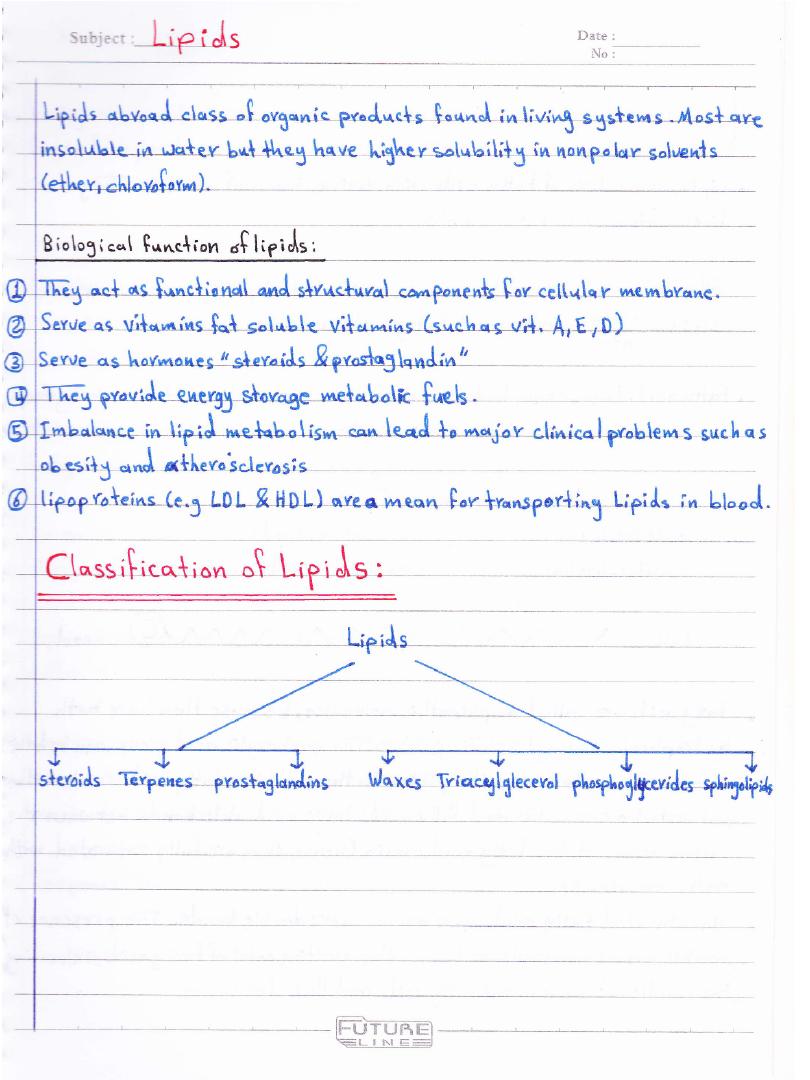 Subject : Lipids
Date :
No :
Lipids abroad class of organic products found in living systems. Most are
insoluble in water but they have higher solubility in nonpolar solvents
(ether, chloroform).
Biological function of lipids:
① They act as functional and structural components for cellular membrane.
② Serve as vitamins fat soluble vitamins (such as vit. A, E, D)
③ Serve as hormones "steroids & prostaglandin"
④ They provide energy storage metabolic fuels.
⑤ Imbalance in lipid metabolism can lead to major clinical problems such as
obesity and atherosclerosis
⑥ lipoproteins (e.g LDL & HDL) are a mean for transporting Lipids in blood.
Classification of Lipids:
Lipids
steroids Terpenes prostaglandins Waxes Triacylglecerol phosphoglycerides sphingolipids
FUTURE
LINE